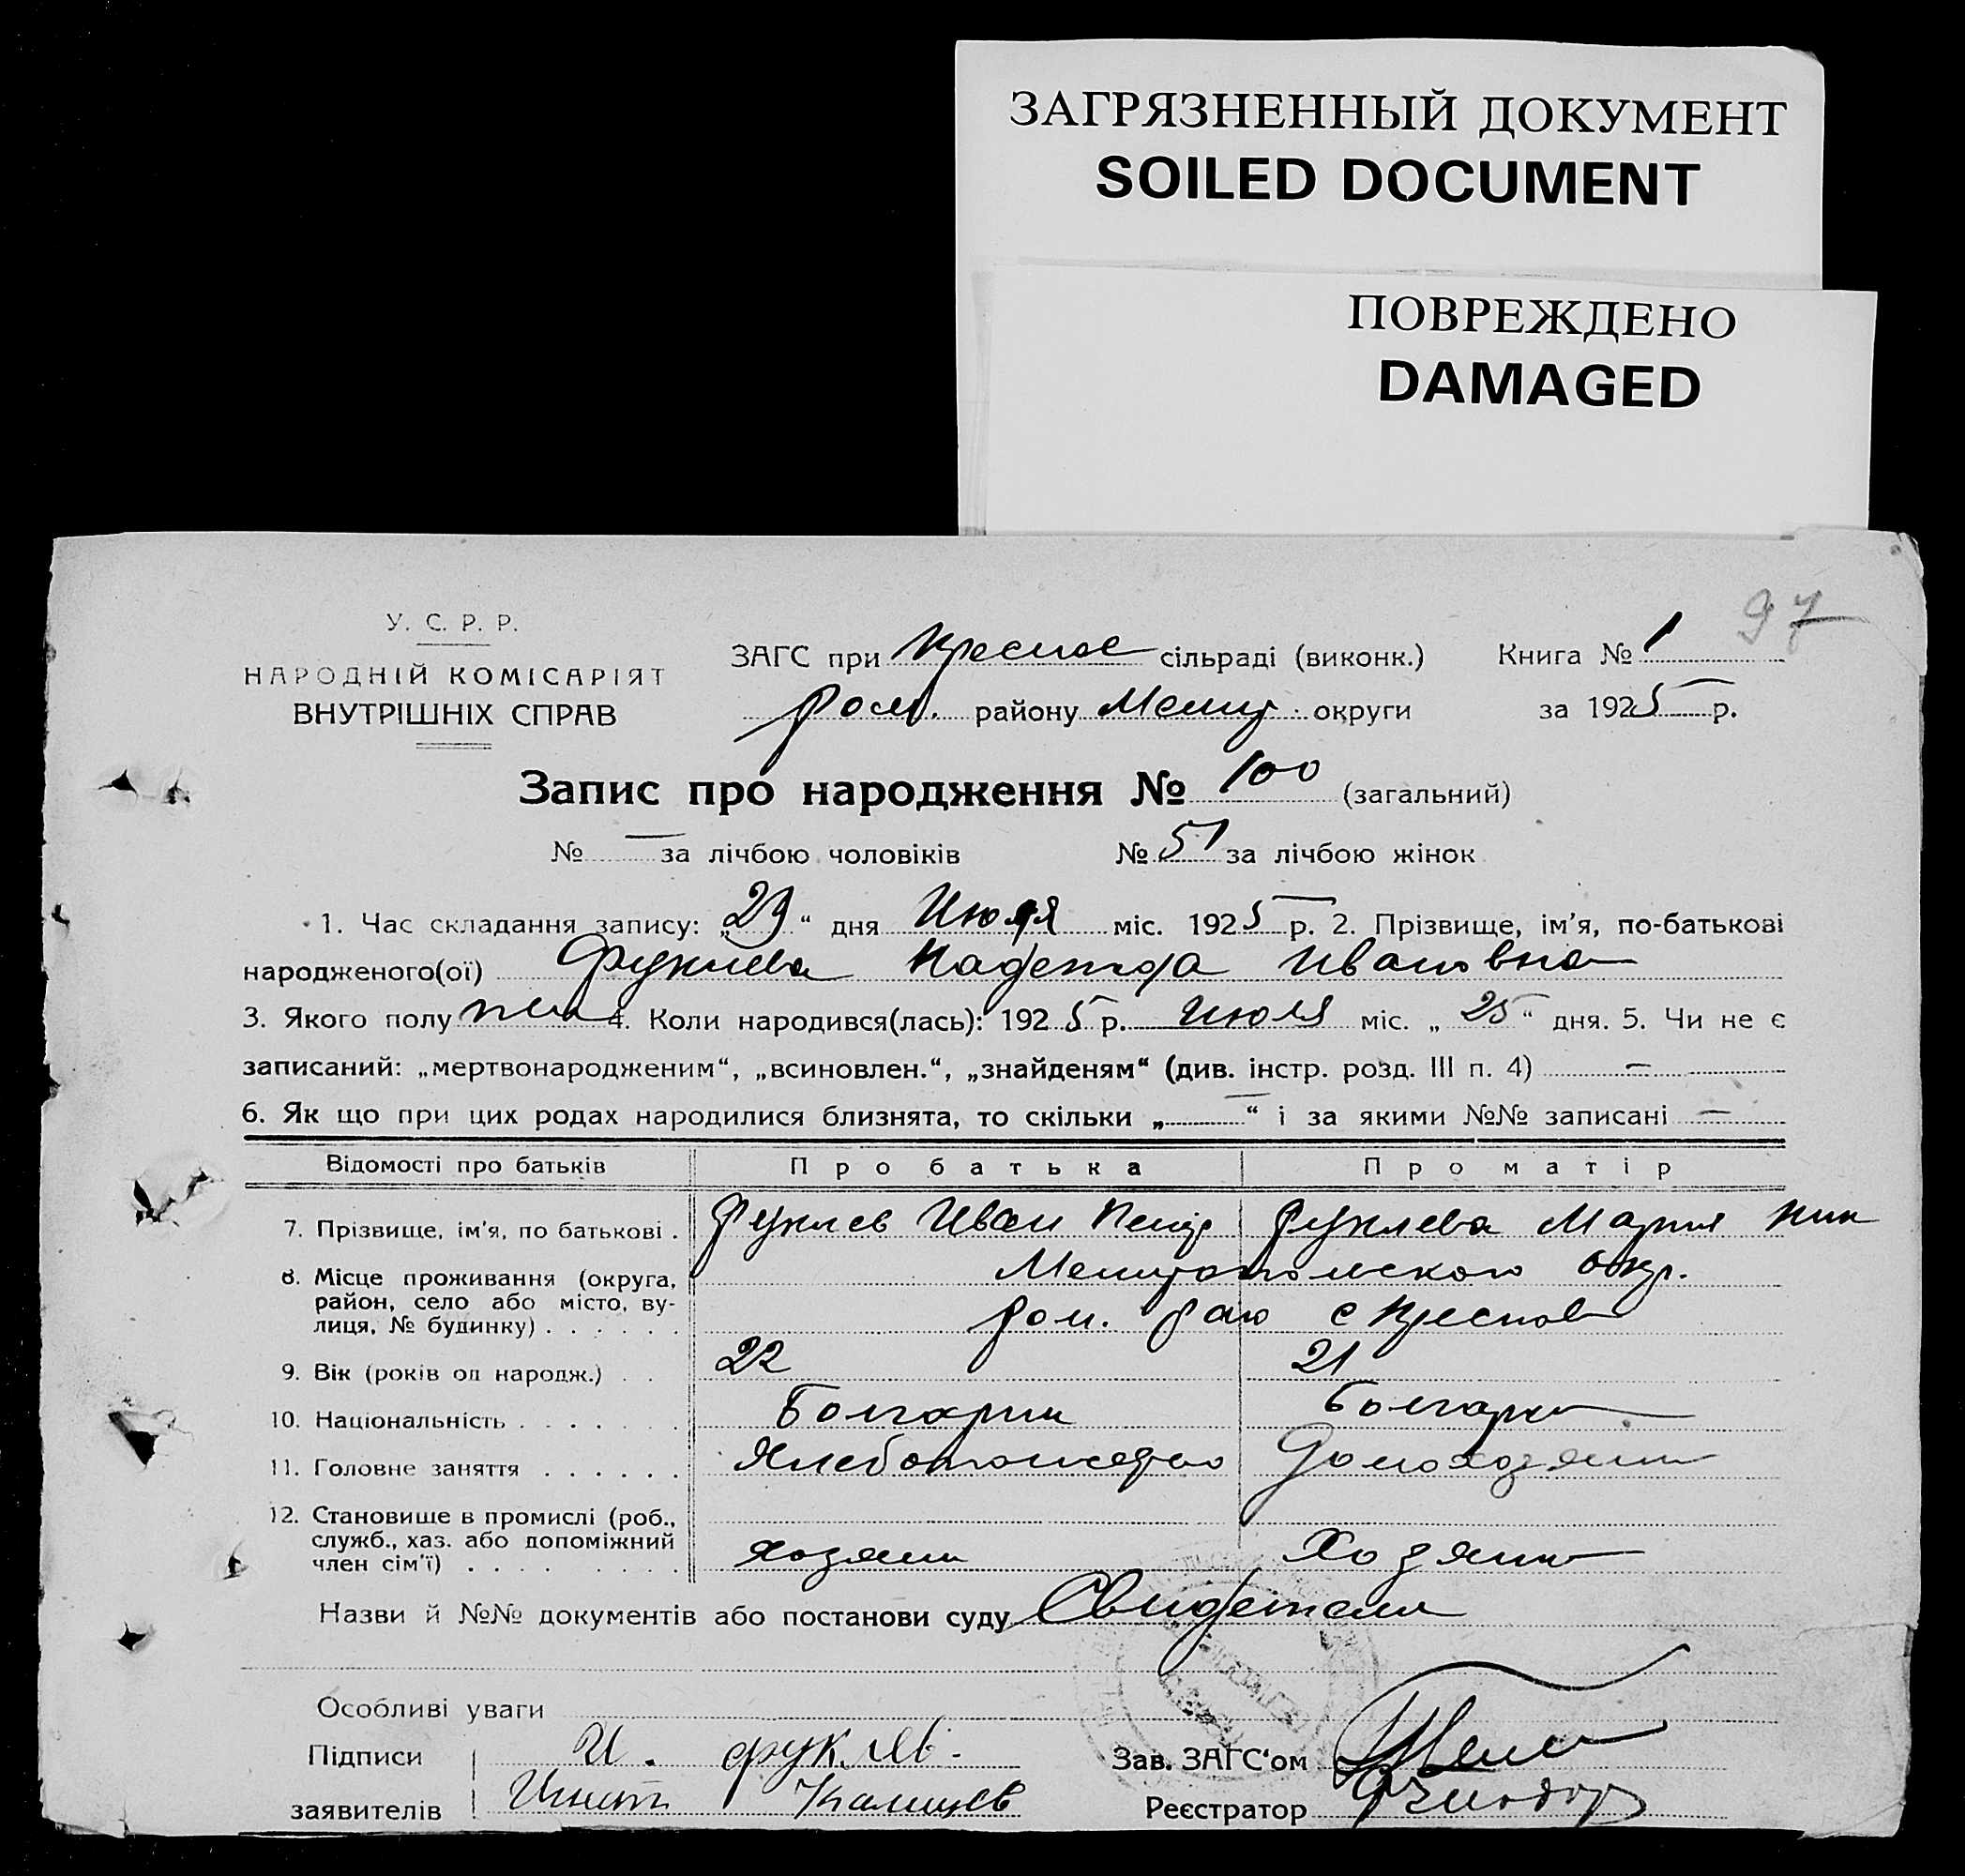 ЗАГРЯЗНЕННЫЙ ДОКУМЕНТ
SOILED DOCUMENT
ПОВРЕЖДЕНО
DAMAGED
97
У. С. Р. Р.
НАРОДНІЙ КОМІСАРІЯТ
ВНУТРІШНІХ СПРАВ
ЗАГС при сільраді (виконк.) Книга № 1
ром. району Мелит. округи за 1925 р.
Запис про народження № 100 (загальний)
№ — за лічбою чоловіків № 51 за лічбою жінок
1. Час складання запису: „29“ дня Июля міс. 1925 р. 2. Прізвище, ім'я, по-батькові
народженого(ої) Фуклева Надежда Ивановна
3. Якого полу жен 4. Коли народився(лась): 1925 р. Июля міс. „25“ дня. 5. Чи не є
записаний: „мертвонародженим“, „всиновлен.“, „знайденям“ (див. інстр. розд. III п. 4) —
6. Як що при цих родах народилися близнята, то скільки „—“ і за якими №№ записані —
Відомості про батьків Про батька Про матір
7. Прізвище, ім'я, по батькові . Фуклев Иван Петр Фуклева Мария Ник
8. Місце проживання (округа, район, село або місто, вулиця, № будинку) . . . . . . Мелитопольского окр.
ром. раю с
9. Вік (років од народж.) . . 22 21
10. Національність . . . . . . Болгарин Болгарка
11. Головне заняття . . . . . . Хлебопашество Домохозяин
12. Становище в промислі (роб.,
служб., хаз. або допоміжний
член сім'ї) . . . . . . . . хозяин Хозяин
Назви й №№ документів або постанови суду Свидетели
Особливі уваги
Підписи И. фуклев. Зав. ЗАГС'ом
заявителів Реєстратор